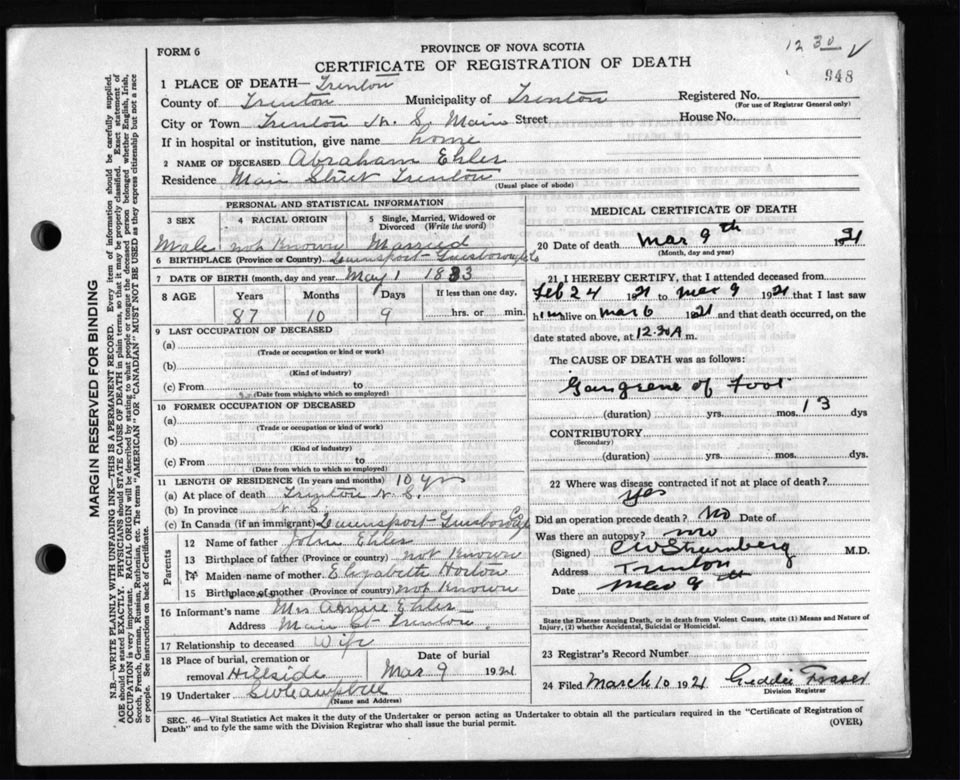 12 30 √
FORM 6
PROVINCE OF NOVA SCOTIA
CERTIFICATE OF REGISTRATION OF DEATH
948
1 PLACE OF DEATH— Trenton
County of Trenton Municipality of Trenton Registered No.
(For use of Registrar General only)
City or Town Trenton N. S. Main Street House No.
If in hospital or institution, give name home
2 NAME OF DECEASED Abraham Ehler
Residence Main Street Trenton
(Usual place of abode)
PERSONAL AND STATISTICAL INFORMATION
3 SEX 4 RACIAL ORIGIN 5 Single, Married, Widowed or Divorced (Write the word)
Male not Known Married
6 BIRTHPLACE (Province or Country)
7 DATE OF BIRTH (month, day and year) May 1 1833
8 AGE Years Months Days If less than one day,
87 10 9 hrs. or min.
9 LAST OCCUPATION OF DECEASED
(a)
(Trade or occupation or kind or work)
(b)
(Kind of industry)
(c) From to
(Date from which to which so employed)
10 FORMER OCCUPATION OF DECEASED
(a)
(Trade or occupation or kind of work)
(b)
(Kind of industry)
(c) From to
(Date from which to which so employed)
11 LENGTH OF RESIDENCE (In years and months) 10 yrs
(a) At place of death Trenton N. S.
(b) In province N. S.
(c) In Canada (if an immigrant)
Parents
12 Name of father John Ehler
13 Birthplace of father (Province or country) not Known
14 Maiden name of mother Elizabeth Horton
15 Birthplace of mother (Province or country) not Known
16 Informant's name Mrs Annie Ehler
Address Main St Trenton
17 Relationship to deceased Wife
18 Place of burial, cremation or removal Hillside Date of burial Mar 9 1921
19 Undertaker C W Campbell
(Name and Address)
MEDICAL CERTIFICATE OF DEATH
20 Date of death Mar 9th 1921
(Month, day and year)
21 I HEREBY CERTIFY, that I attended deceased from
Feb 24 1921 to Mar 9 1921 that I last saw
him alive on Mar 6 1921 and that death occurred, on the
date stated above, at 12.30 A m.
The CAUSE OF DEATH was as follows:
Gangrene of Foot
(duration) yrs. mos. 13 dys
CONTRIBUTORY
(Secondary)
(duration) yrs. mos. dys.
22 Where was disease contracted if not at place of death?
yes
Did an operation precede death? No Date of
Was there an autopsy? no
(Signed) M.D.
Address Trenton
Date Mar 9th
State the Disease causing Death, or in death from Violent Causes, state (1) Means and Nature of Injury, (2) whether Accidental, Suicidal or Homicidal.
23 Registrar's Record Number
24 Filed March 10 1921 Fraser
Division Registrar
SEC. 46—Vital Statistics Act makes it the duty of the Undertaker or person acting as Undertaker to obtain all the particulars required in the "Certificate of Registration of
Death" and to fyle the same with the Division Registrar who shall issue the burial permit. (OVER)
MARGIN RESERVED FOR BINDING
N.B.—WRITE PLAINLY WITH UNFADING INK—THIS IS A PERMANENT RECORD. Every item of information should be carefully supplied.
AGE should be stated EXACTLY. PHYSICIANS should STATE CAUSE OF DEATH in plain terms, so that it may be properly classified. Exact statement of
OCCUPATION is very important. RACIAL ORIGIN will be described by stating to what people or tongue the deceased person belonged whether English, Irish,
Scotch, French, German, Russian, Ruthenian, etc. The terms "AMERICAN" OR "CANADIAN" MUST NOT BE USED as they express citizenship but not a race
or people. See instructions on back of Certificate.